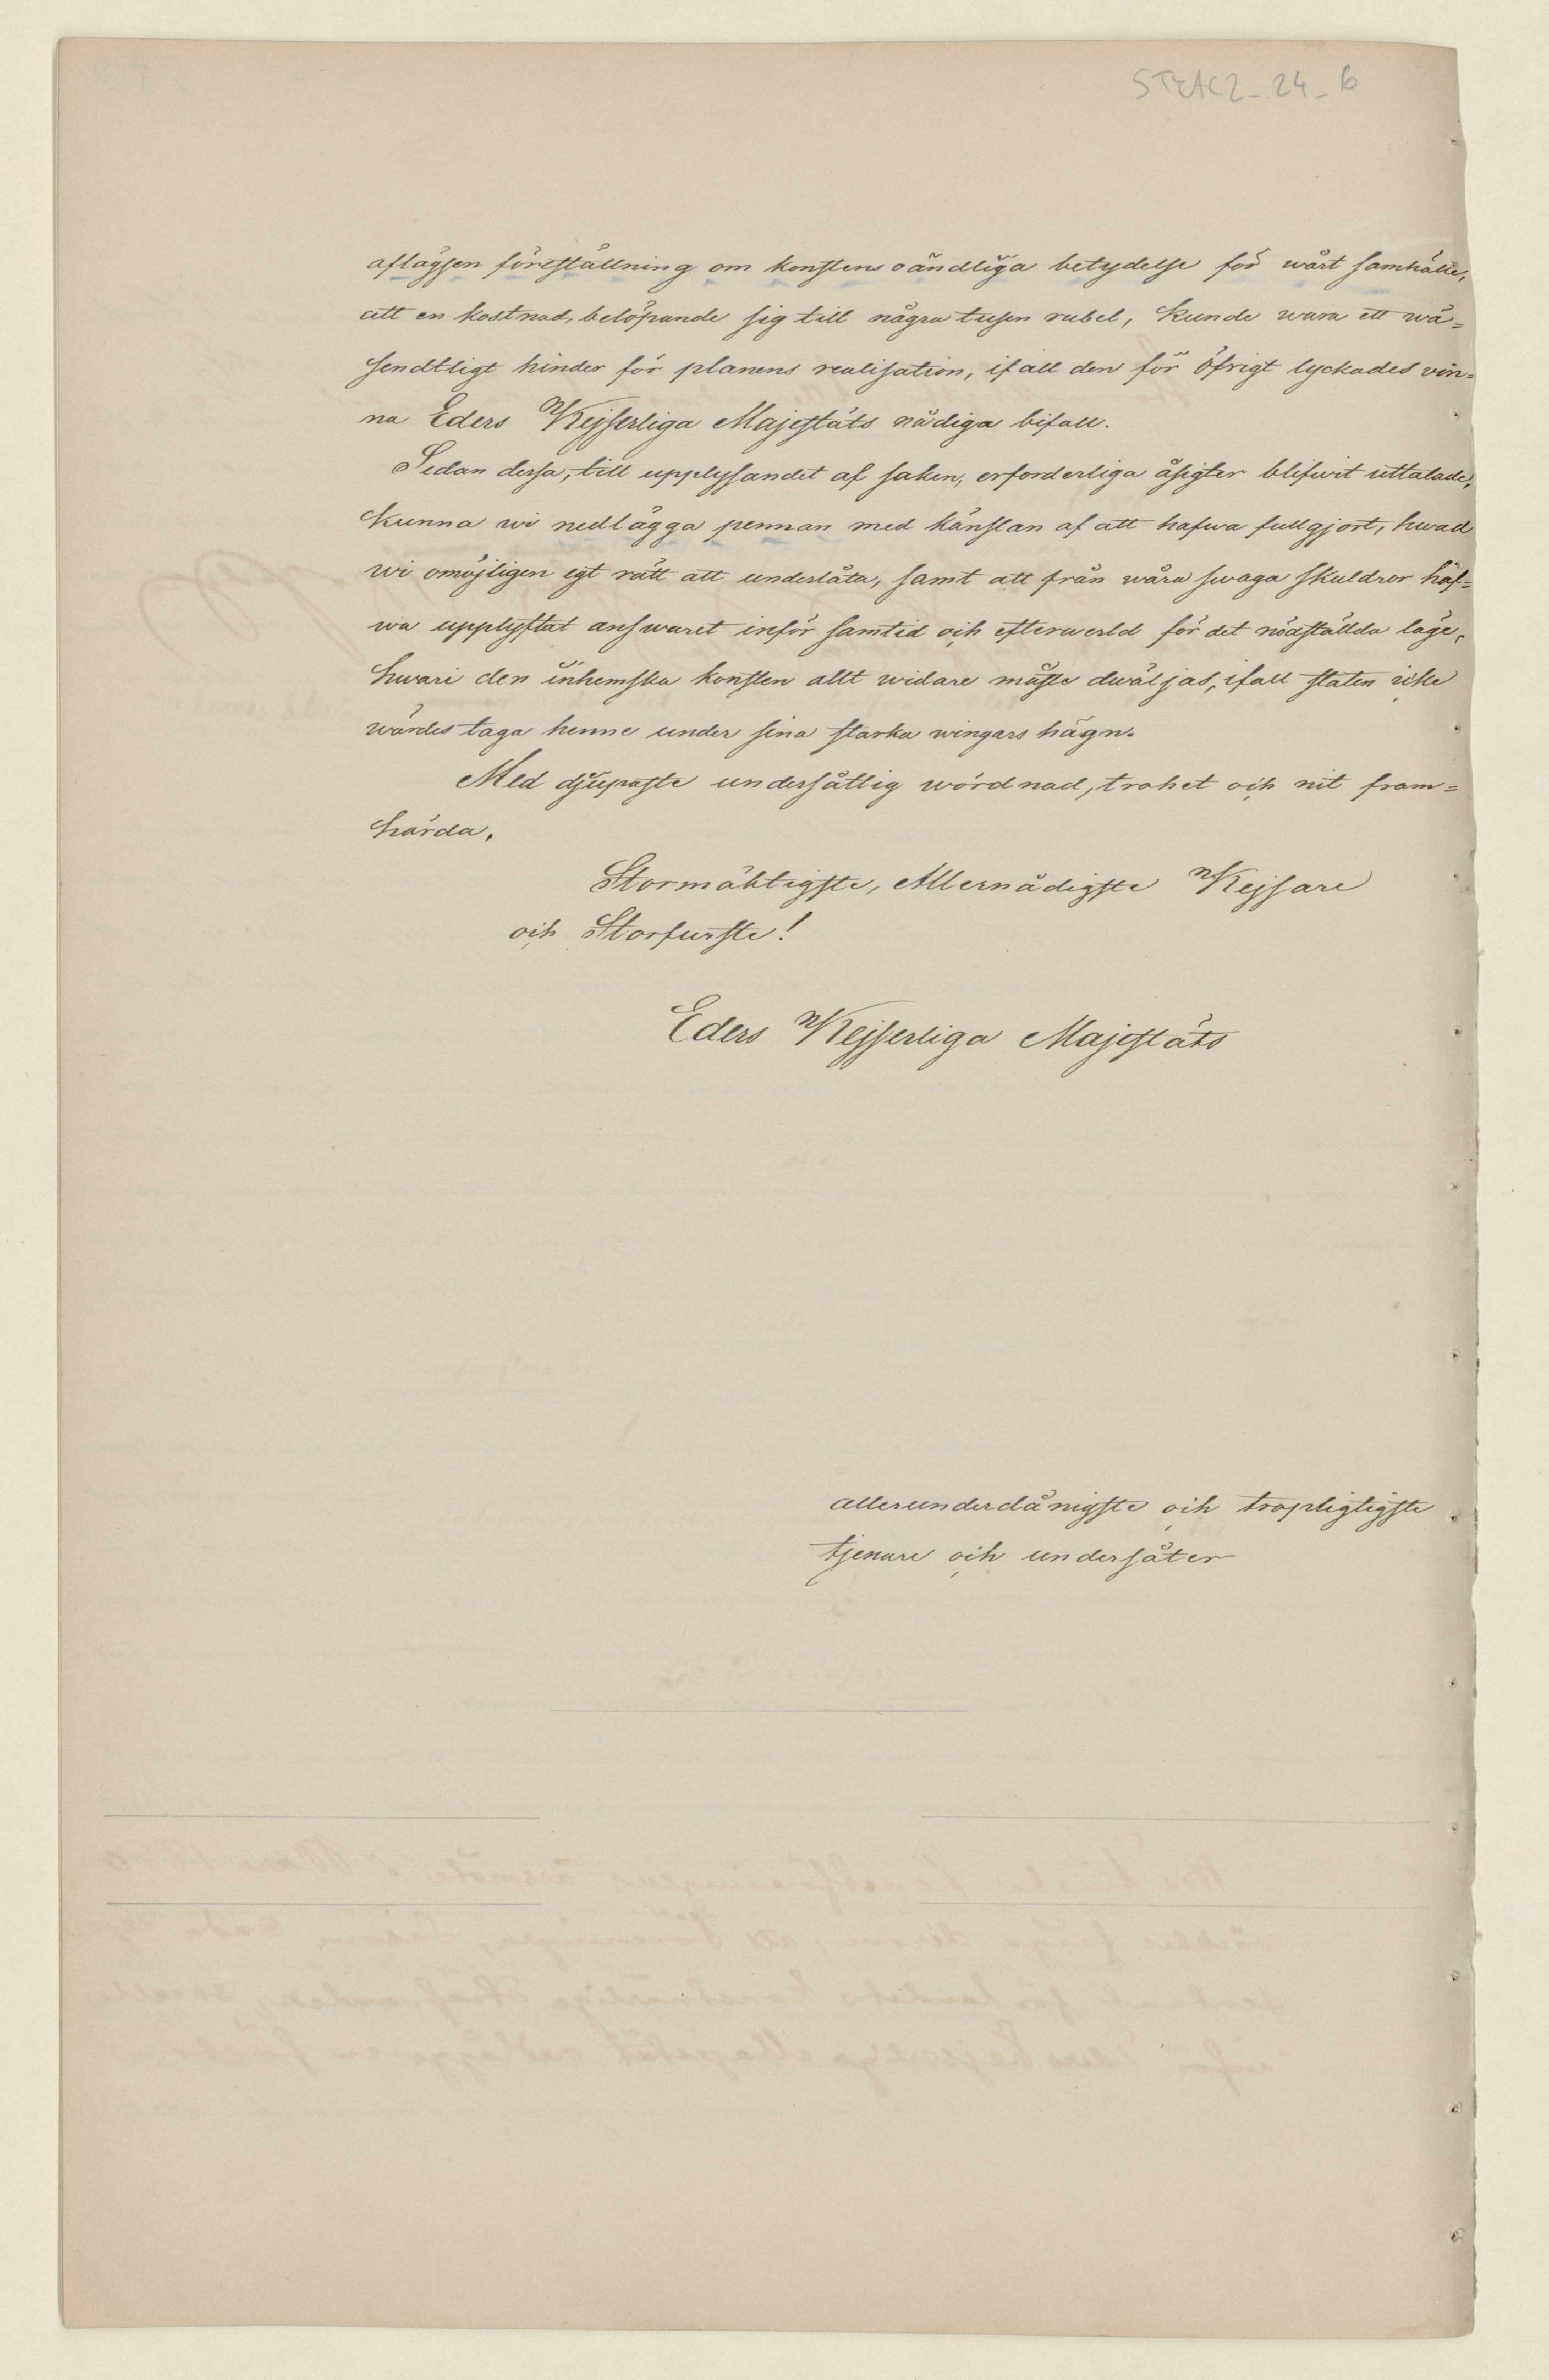 STYAC2_24_6
aflägsen föreställning om konstens oändliga betydelse för wårt samhälle,
att en kostnad, belöpande sig till några tusen rubel, kunde wara ett wä=
sendtligt hinder för planens realisation, ifall den för öfrigt lyckades vin=
na Eders Kejserliga Majestäts nådiga bifall.
Sedan dessa, till upplysandet af saken, erforderliga åsigter blifwit uttalade,
kunna wi nedlägga pennan med känslan af att hafwa fullgjort, hwad
wi omöjligen egt rätt att underlåta, samt att från wåra swaga skuldror haf=
wa upplyftat answaret inför samtid och efterwerld för det nödställda läge,
hwari den inhemska konsten allt widare måste dwäljas, ifall staten icke
wärdes taga henne under sina starka wingars hägn.
Med djupaste undersåtlig wördnad, trohet och nit fram=
härda,
Stormäktigste, Allernådigste Kejsare
och Storfurste!
Eders Kejserliga Majestäts
allerunderdånigste och tropligtigste
tjenare och undersåter